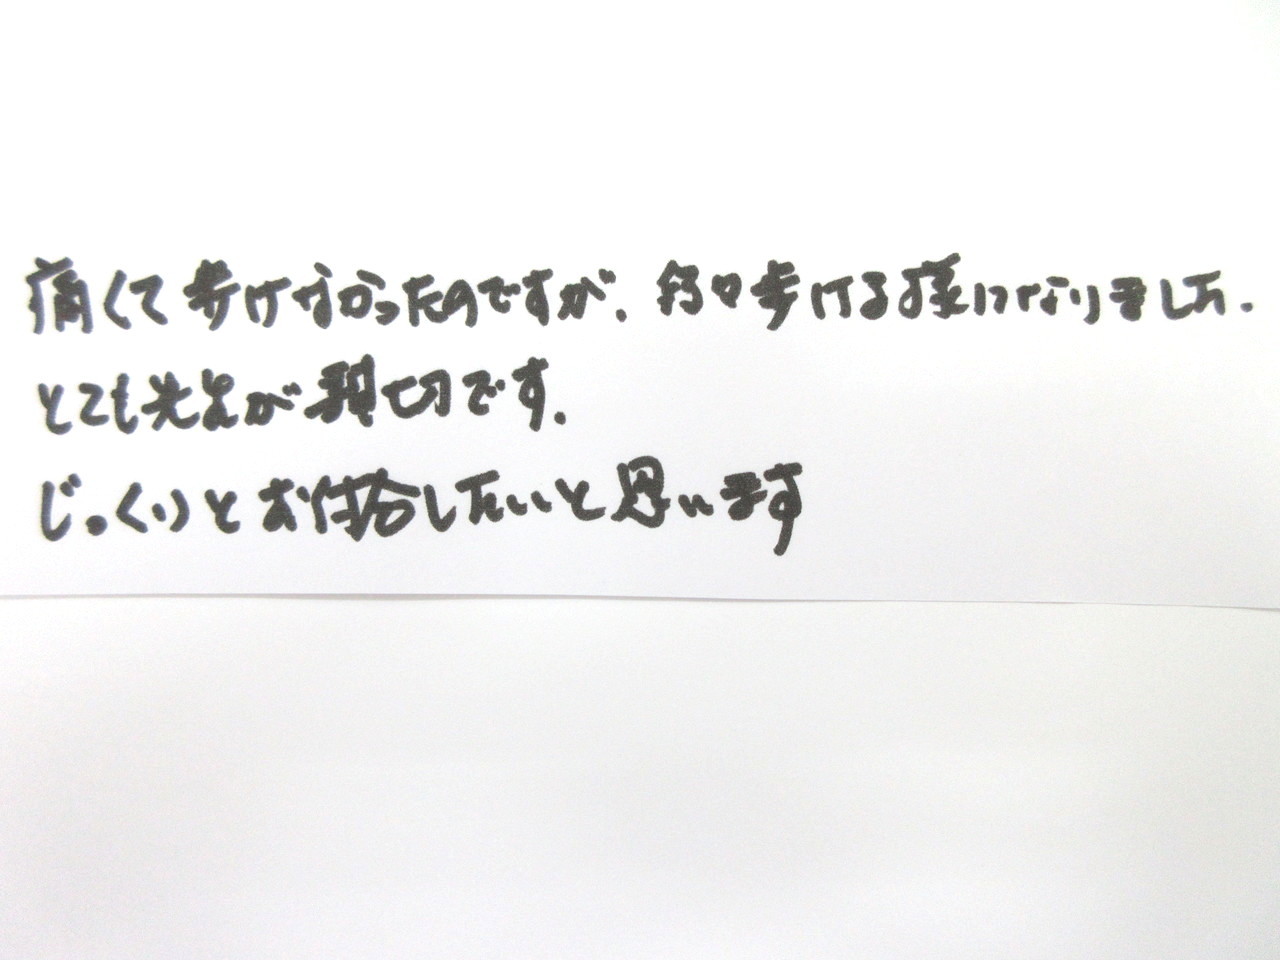 痛くて歩けなかったのですが、段々歩ける様になりました.
とても先生が親切です.
じっくりとお付合したいと思います